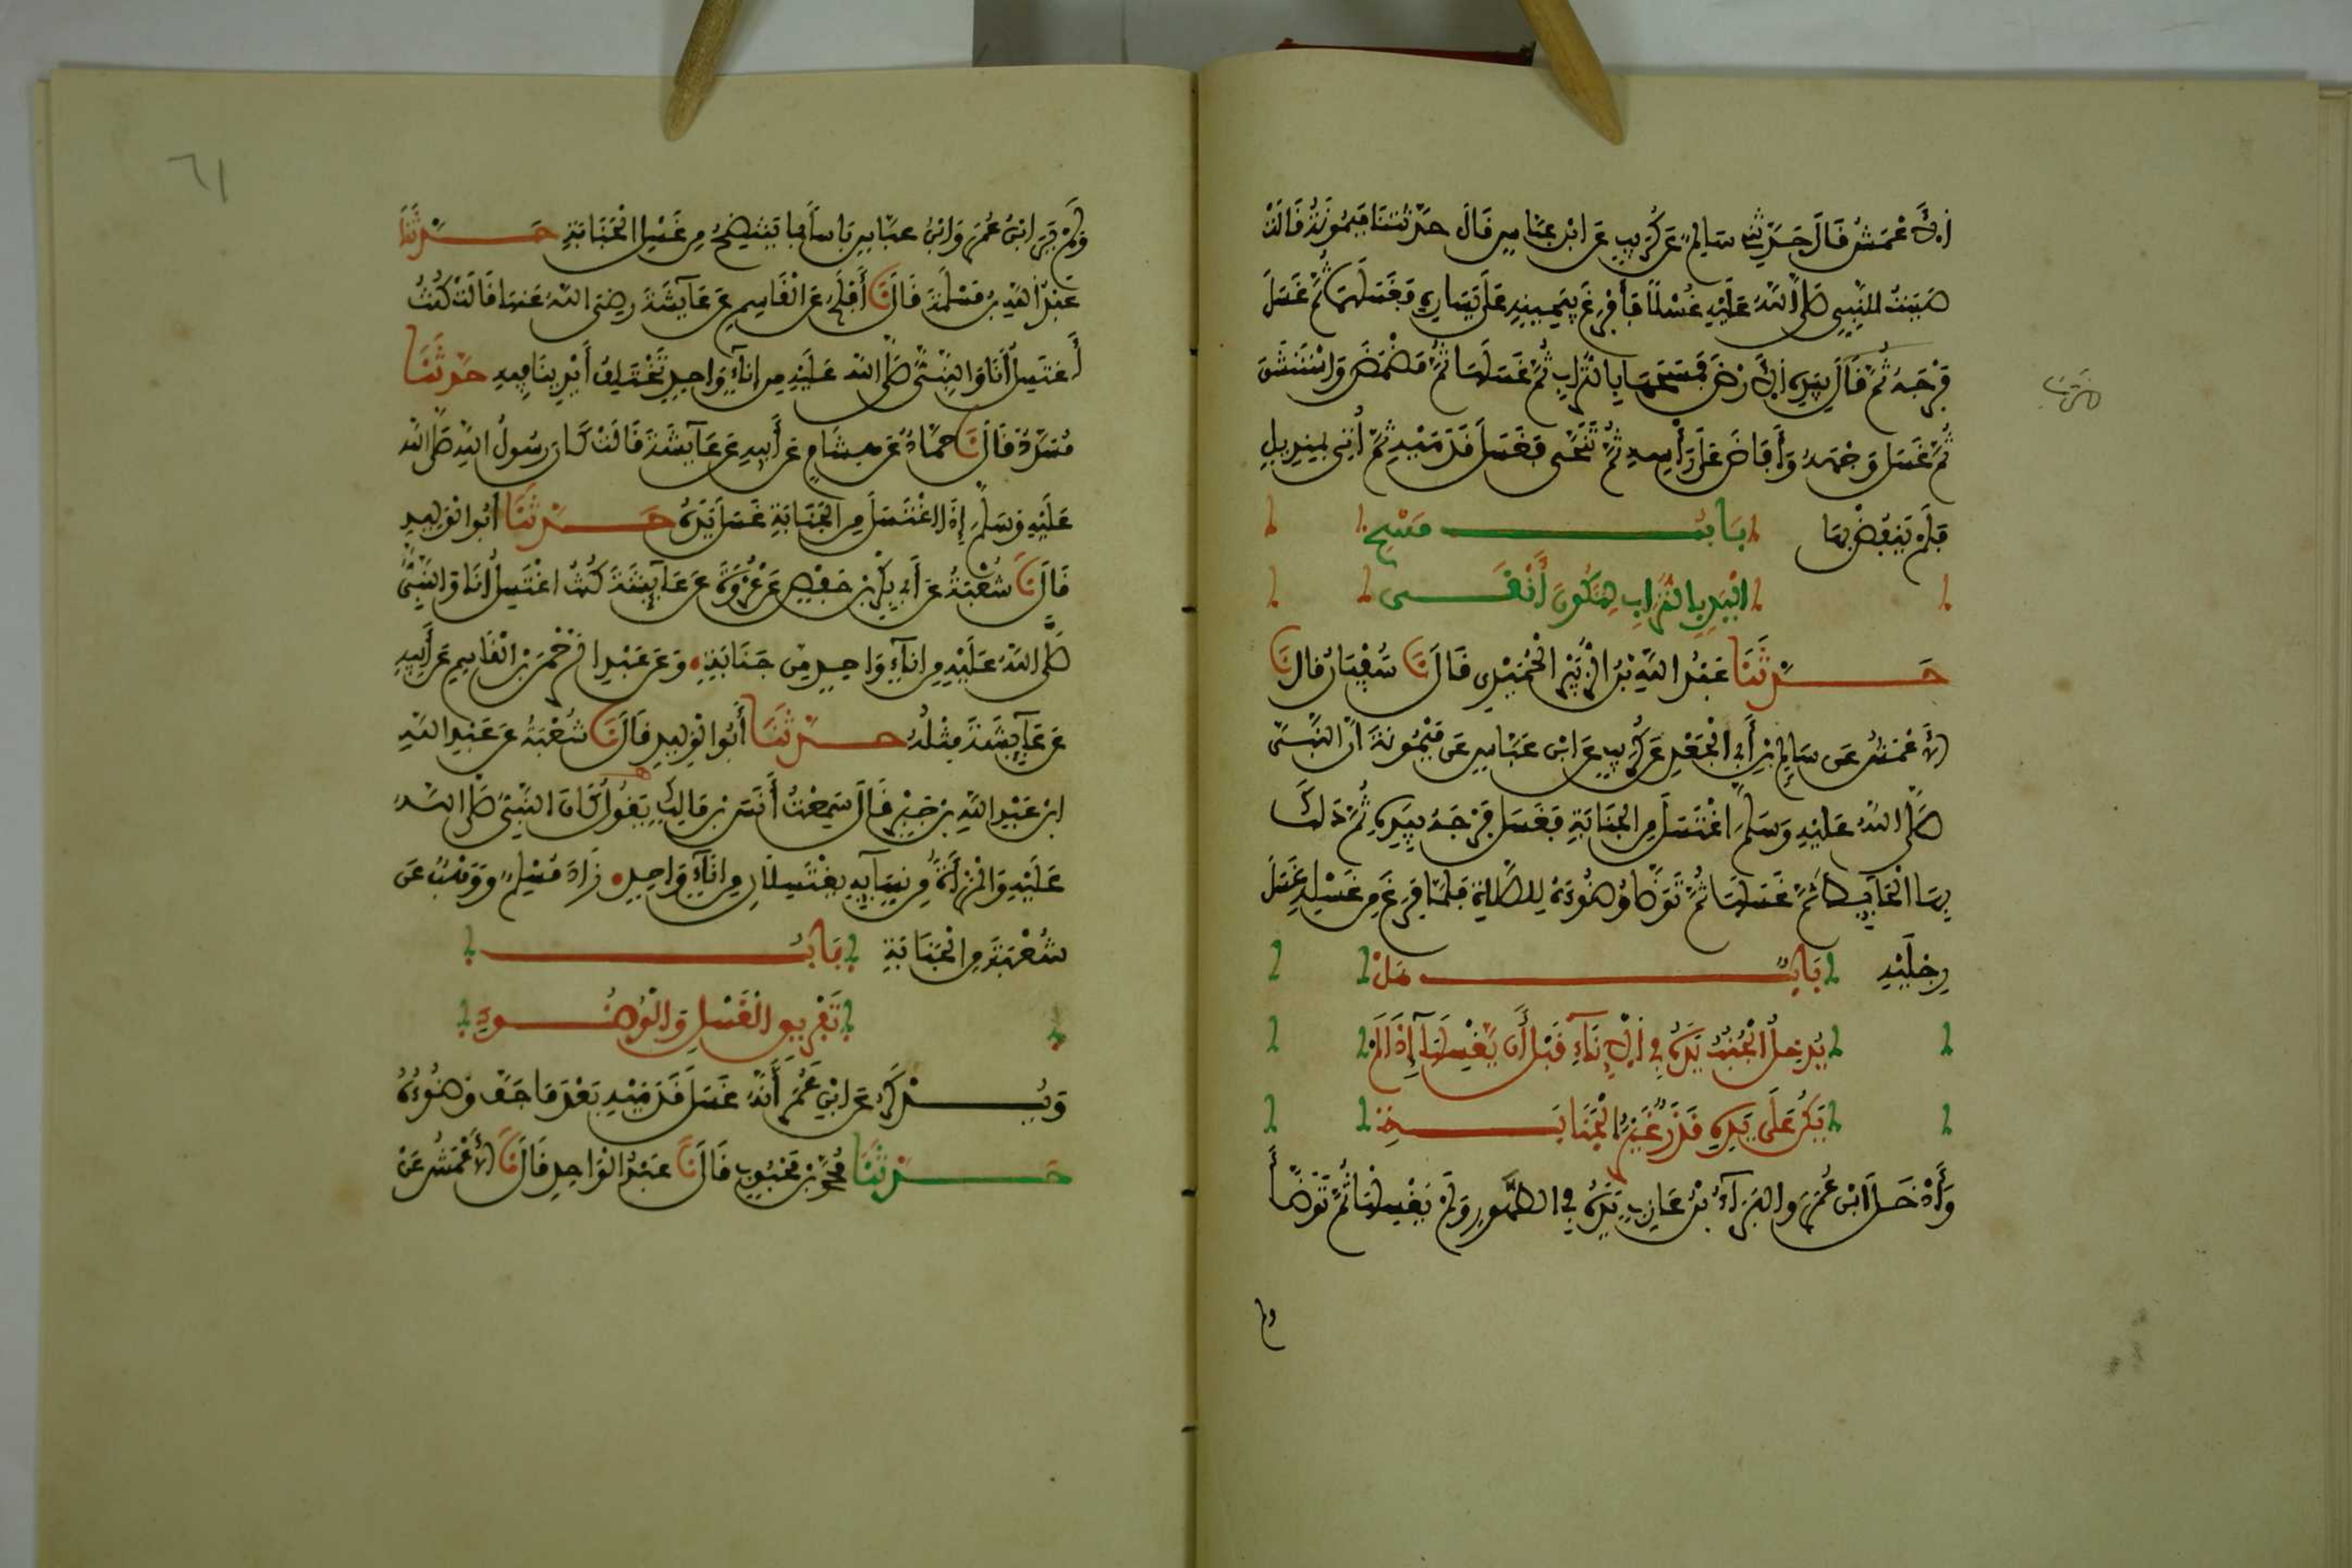 الأَعْمَشُ قَالَ حَدَّثَنِي سَالِمٌ عَن كُرَيْبٍ عَنِ ابْنِ عَبَّاسٍ قَالَ حَدَّثَتْنَا مَيْمُونَةُ قَالَتْ
صَبَبْتُ لِلنَّبِيِّ صَلَّى اللَّهُ عَلَيْهِ غُسْلًا فَأَفْرَغَ بِيَمِينِهِ عَلَى يَسَارِهِ فَغَسَلَهُمَا ثُمَّ غَسَلَ
فَرْجَهُ ثُمَّ قَالَ بِيَدِهِ الأَرْضَ فَمَسَحَهَا بِالتُّرَابِ ثُمَّ غَسَلَهَا ثُمَّ مَضْمَضَ وَاسْتَنْشَقَ
ثُمَّ غَسَلَ وَجْهَهُ وَأَفَاضَ عَلَى رَأْسِهِ ثُمَّ تَنَحَّى فَغَسَلَ قَدَمَيْهِ ثُمَّ أُتِيَ بِمِنْدِيلٍ
فَلَمْ يَنْفُضْ بِهَا بَابُ مَسْحِ
الْيَدِ بِالتُّرَابِ لِتَكُونَ أَنْقَى
حَدَّثَنَا عَبْدُ اللَّهِ بْنُ الزُّبَيْرِ الْحُمَيْدِي قَالَ نَا سُفْيَانُ قَالَ نَا
الأَعْمَشُ عَن سَالِمِ بْنِ أَبِي الْجَعْدِ عَن كُرَيْبٍ عَنِ ابْنِ عَبَّاسٍ عَن مَيْمُونَةَ أَنَّ النَّبِيَّ
صَلَّى اللَّهُ عَلَيْهِ وَسَلَّمَ اغْتَسَلَ مِنَ الْجَنَابَةِ فَغَسَلَ فَرْجَهُ بِيَدِهِ ثُمَّ دَلَكَ
بِهَا الْحَائِطَ ثُمَّ غَسَلَهَا ثُمَّ تَوَضَّأَ وُضُوءَهُ لِلصَّلَاةِ فَلَمَّا فَرَغَ مِنْ غُسْلِهِ غَسَلَ
رِجْلَيْهِ بَابٌ هَلْ
يُدْخِلُ الْجُنُبُ يَدَهُ فِي الإِنَاءِ قَبْلَ أَن يَغْسِلَهَا إِذَا لَمْ
يَكُنْ عَلَى يَدِهِ قَذَرٌ غَيْرُ الْجَنَابَةِ
وَأَدْخَلَ ابْنُ عُمَرَ وَالْبَرَاءُ بْنُ عَازِبٍ يَدَهُ فِي الطَّهُورِ وَلَمْ يَغْسِلْهَا ثُمَّ تَوَضَّأَ
ولم
٦١
وَلَمْ يَرَ ابْنُ عُمَرَ وَابْنُ عَبَّاسٍ بَأْسًا بِمَا يَنْتَضِحُ مِنْ غُسْلِ الْجَنَابَةِ حَدَّثَنَا
عَبْدُ اللَّهِ بْنُ مَسْلَمَةَ قَالَ نَا أَفْلَحُ عَنِ الْقَاسِمِ عَن عَائِشَةَ رَضِيَ اللَّهُ عَنْهَا قَالَتْ كُنْتُ
أَغْتَسِلُ أَنَا وَالنَّبِيُّ صَلَّى اللَّهُ عَلَيْهِ مِن إِنَاءٍ وَاحِدٍ تَخْتَلِفُ أَيْدِينَا فِيهِ حَدَّثَنَا
مُسَدَّدٌ قَالَ نَا حَمَّادٌ عَن هِشَامٍ عَن أَبِيهِ عَن عَائِشَةَ قَالَتْ كَانَ رَسُولُ اللَّهِ صَلَّى اللَّهُ
عَلَيْهِ وَسَلَّمَ إِذَا اغْتَسَلَ مِنَ الْجَنَابَةِ غَسَلَ يَدَهُ حَدَّثَنَا أَبُو الْوَلِيدِ
قَالَ نَا شُعْبَةُ عَن أَبِي بَكْرِ بْنِ حَفْصٍ عَن عُرْوَةَ عَن عَائِشَةَ كُنْتُ اغْتَسِلُ أَنَا وَالنَّبِيُّ
صَلَّى اللَّهُ عَلَيْهِ مِن إِنَاءٍ وَاحِدٍ مِن جَنَابَةٍ وَعَن عَبْدِ الرَّحْمَنِ بْنِ الْقَاسِمِ عَن أَبِيهِ
عَن عَائِشَةَ مِثْلُهُ حَدَّثَنَا أَبُو الْوَلِيدِ قَالَ نَا شُعْبَةُ عَن عَبْدِ اللَّهِ
ابْنِ عَبْدِ اللَّهِ بْنِ جَبْرٍ قَالَ سَمِعْتُ أَنَسَ بْنَ مَالِكٍ يَقُولُ كَانَ النَّبِيُّ صَلَّى اللَّهُ
عَلَيْهِ وَالْمَرْأَةُ مِن نِسَائِهِ يَغْتَسِلَانِ مِن إِنَاءٍ وَاحِدٍ زَادَ مُسْلِمٌ وَوَهْبٌ عَن
شُعْبَةَ مِنَ الْجَنَابَةِ بَابُ
تَفْرِيقِ الْغُسْلِ وَالْوُضُوءِ
وَيُذْكَرُ عَنِ ابْنِ عُمَرَ أَنَّهُ غَسَلَ قَدَمَيْهِ بَعْدَمَا جَفَّ وَضُوءُهُ
حَدَّثَنَا مُحَمَّدُ بْنُ مَحْبُوبٍ قَالَ نَا عَبْدُ الْوَاحِدِ قَالَ نَا الأَعْمَشُ عَنْ